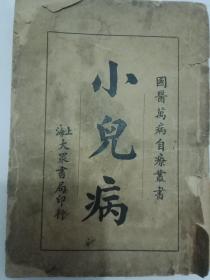 國醫萬病自療叢書
小兒病
上海大眾書局印行